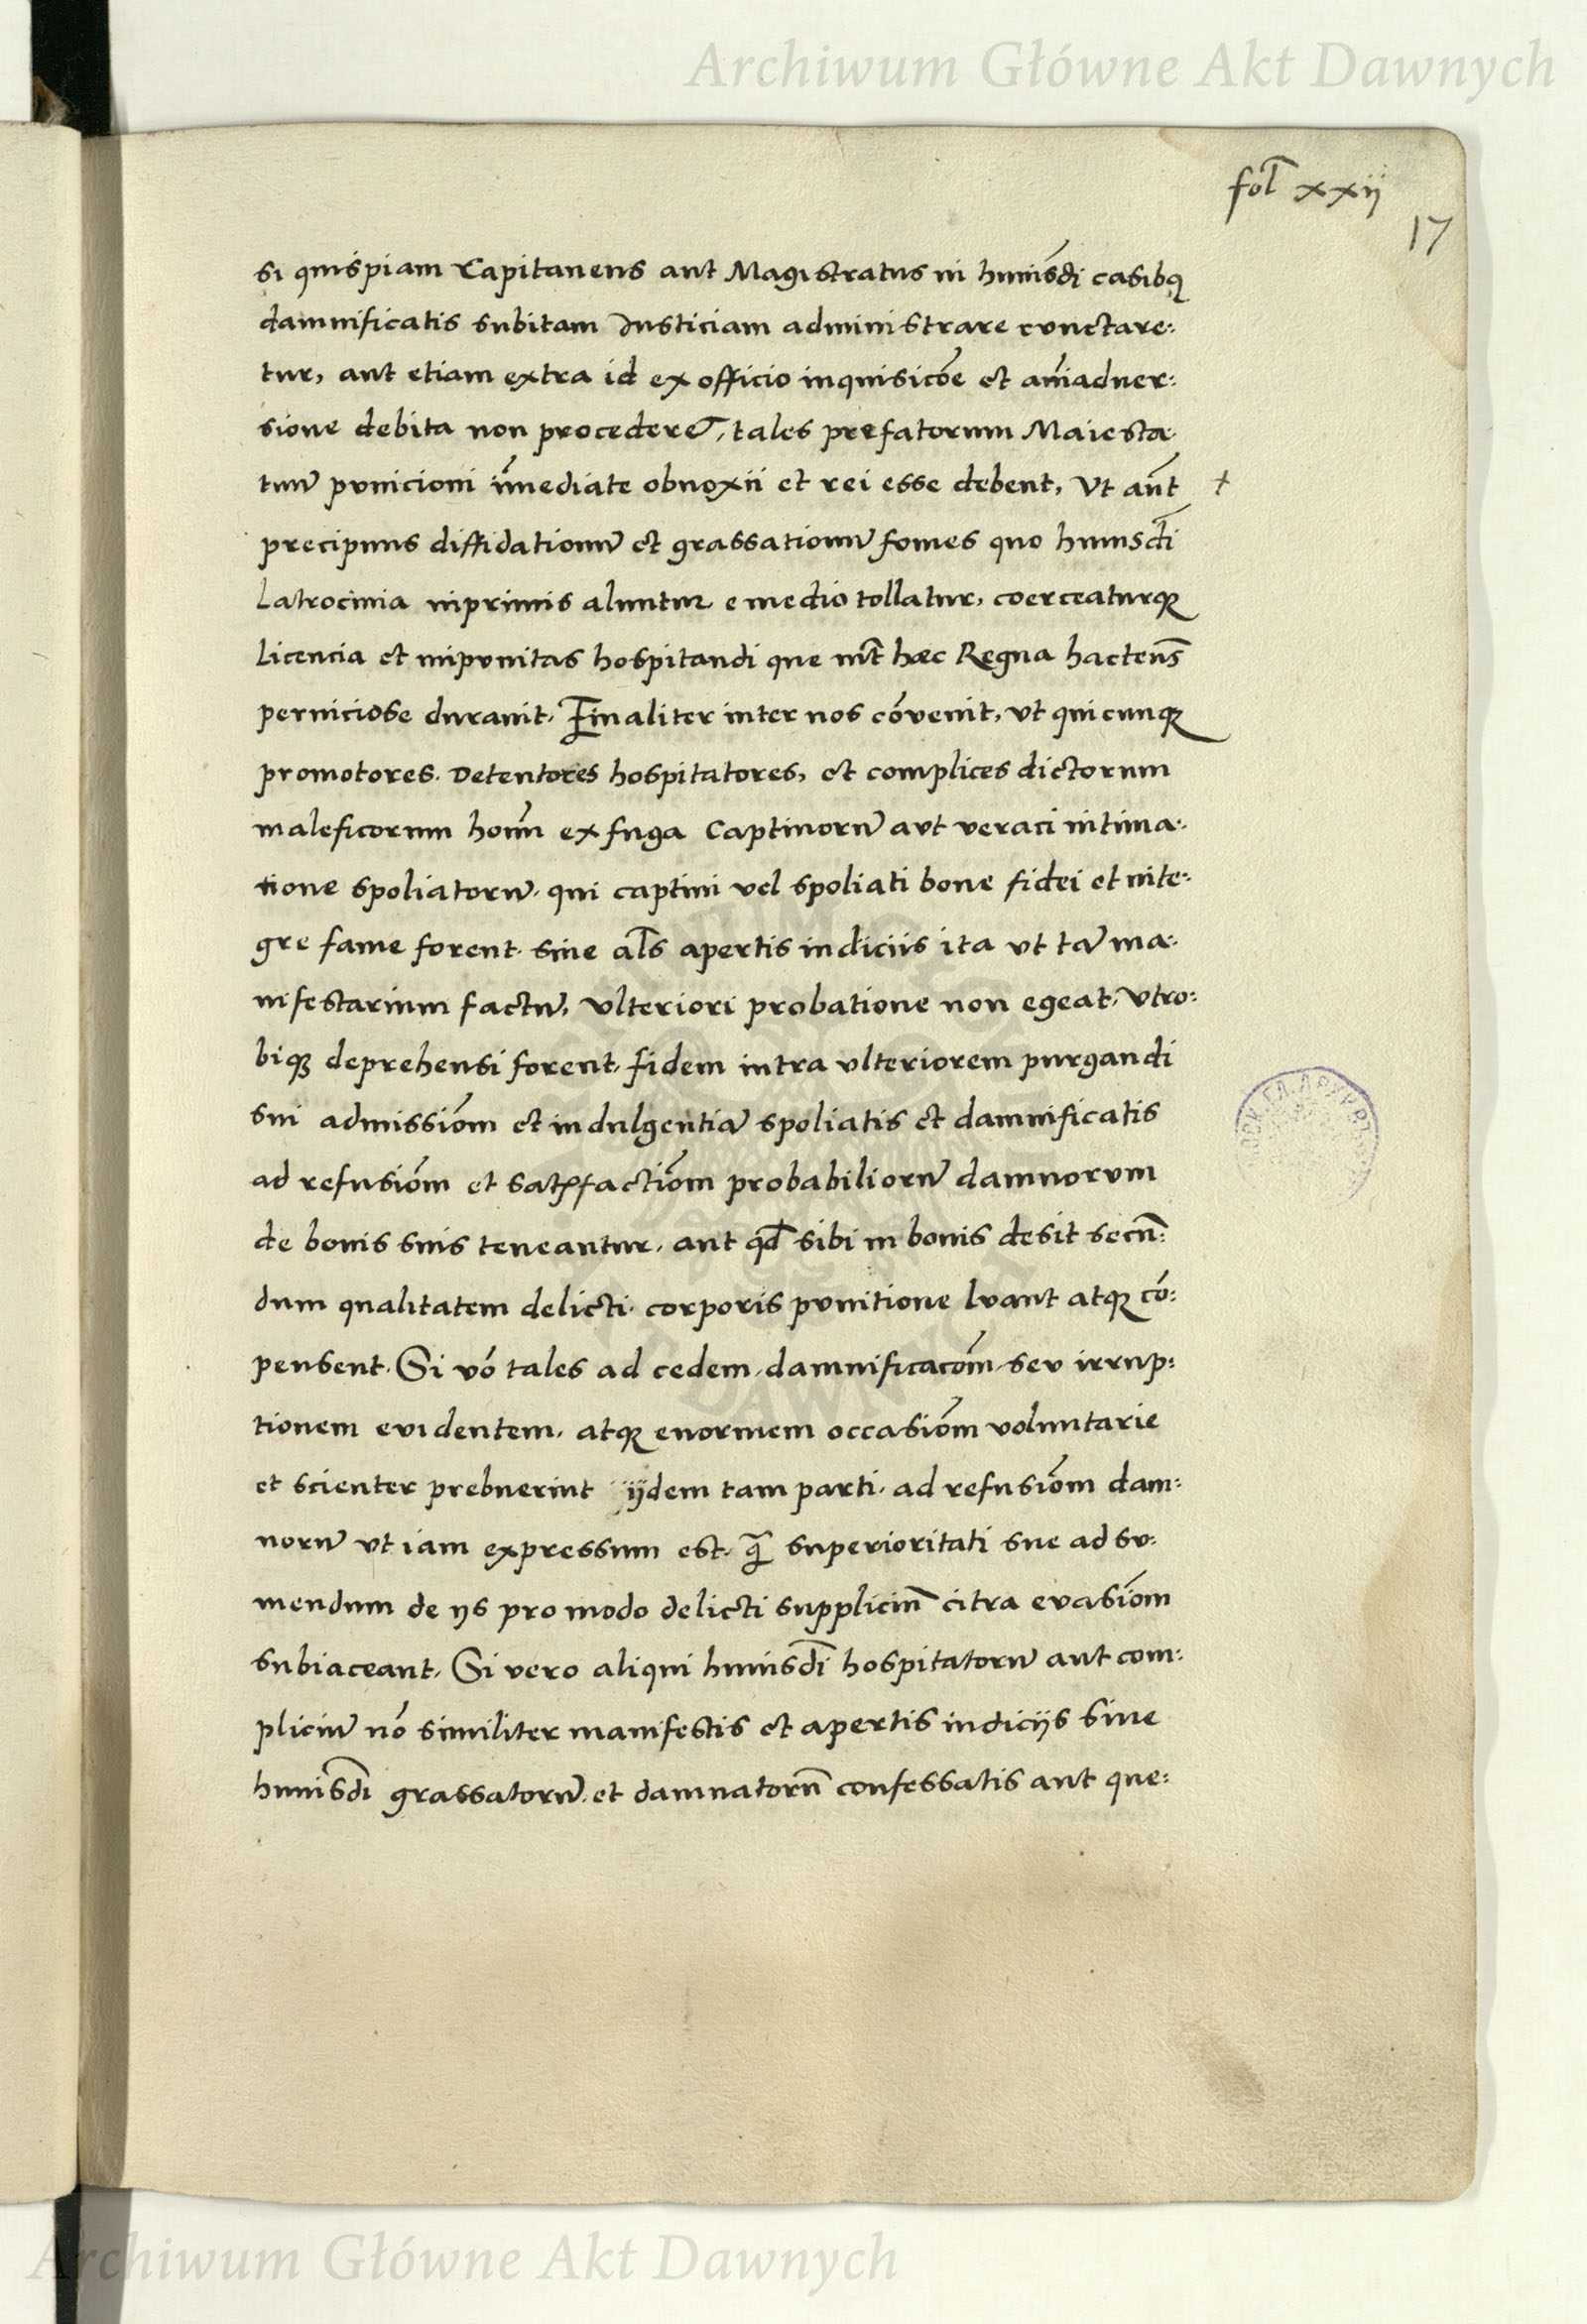 Archiwum Główne Akt Dawnych
fol̄ xxij
17
si quispiam Capitaneus aut Magistratus in huiusdi casibꝰ
damnificatis subitam Iusticiam administrare cunctare:
tur, aut etiam extra id ex officio inquisicōe et aīadver:
sione debita non procederet, tales prefatorum Maiesta:
tum̄ punicioni īmediate obnoxii et rei esse debent, Ut aūt
precipuus diffidationum̄ et grassationum̄ fomes quo huiusdi
Latrocinia inprimis aluntur e medio tollatur, coerceaturqꝫ
Licencia et impunitas hospitandi que int̄ hæc Regna hacten̄s
perniciose duravit. Finaliter inter nos cōvenit, ut quicunqꝫ
promotores. Detentores hospitatores, et complices dictorum
maleficorum hoīm ex fuga Captivorum̄ aut veraci intima:
tione spoliatorum̄. qui captivi vel spoliati bone fidei et inte:
gre fame forent. sive al̄s apertis indiciis ita ut tam̄ ma:
nifestarium factum̄, ulteriori probatione non egeat, Utro:
biqꝫ deprehensi forent. fidem intra ulteriorem purgandi
sui admissiōm et indulgentiam̄ spoliatis et damnificatis
ad refusiōm et satisfactiōm probabiliorum̄ damnorum
de bonis suis teneantur. aut qd̄ sibi in bonis desit secū:
dum qualitatem delicti. corporis punitione luant atqꝫ cō:
pensent. Si vō tales ad cedem, damnificacōm, seu irrup:
tionem evidentem, atqꝫ enormem occasiōm voluntarie
et scienter prebuerint ijdem tam parti. ad refusiōm dam:
norum̄ ut iam expressum est. q̄ superioritati sue ad su:
mendum de ijs pro modo delicti suppliciū citra evasiōm
subiaceant. Si vero aliqui huiusdi hospitatorum̄ aut com:
plicium̄ nō similiter manifestis et apertis indicijs sive
huiusdi grassatorum̄. et damnatorū confessatis aut que:
Archiwum Główne Akt Dawnych